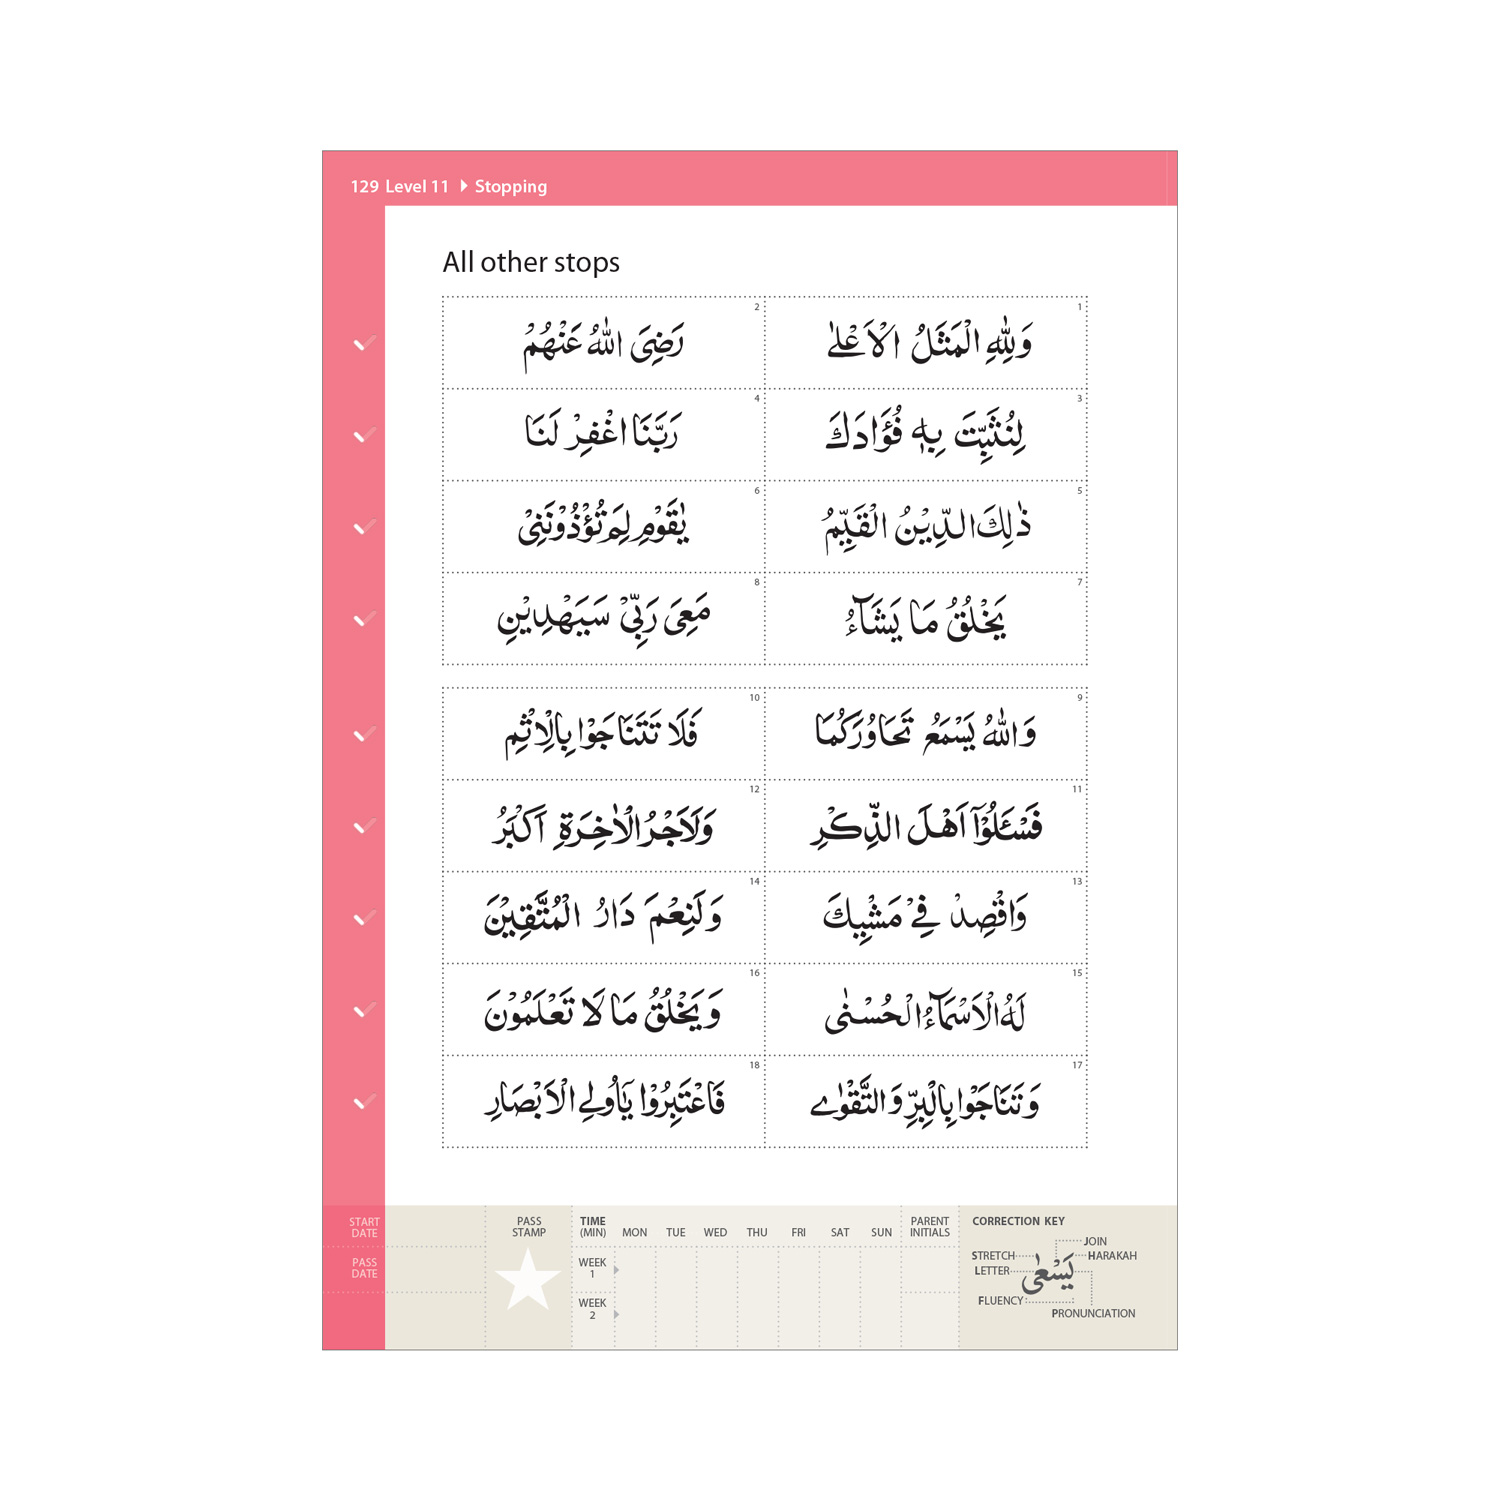 129 Level 11 Stopping
All other stops
1
وَلِلّٰهِ الْمَثَلُ الْاَعْلٰى
2
رَضِىَ اللّٰهُ عَنْهُمْ
3
لِنُثَبِّتَ بِهٖ فُؤَادَكَ
4
رَبَّنَا اغْفِرْ لَنَا
5
ذٰلِكَ الدِّيْنُ الْقَيِّمُ
6
يٰقَوْمِ لِمَ تُؤْذُوْنَنِىْ
7
يَخْلُقُ مَا يَشَآءُ
8
مَعِىَ رَبِّىْ سَيَهْدِيْنِ
9
وَاللّٰهُ يَسْمَعُ تَحَاوُرَكُمَا
10
فَلَا تَتَنَاجَوْا بِالْاِثْمِ
11
فَسْـَٔلُوْٓا اَهْلَ الذِّكْرِ
12
وَلَاَجْرُ الْاٰخِرَةِ اَكْبَرُ
13
وَاقْصِدْ فِىْ مَشْيِكَ
14
وَلَنِعْمَ دَارُ الْمُتَّقِيْنَ
15
لَهُ الْاَسْمَآءُ الْحُسْنٰى
16
وَيَخْلُقُ مَا لَا تَعْلَمُوْنَ
17
وَتَنَاجَوْا بِالْبِرِّ وَالتَّقْوٰى
18
فَاعْتَبِرُوْا يٰٓاُولِى الْاَبْصَارِ
START DATE
PASS DATE
PASS STAMP
TIME (MIN) MON TUE WED THU FRI SAT SUN
WEEK 1
WEEK 2
PARENT INITIALS
CORRECTION KEY
JOIN
STRETCH
HARAKAH
LETTER
يَسْعٰى
FLUENCY
PRONUNCIATION